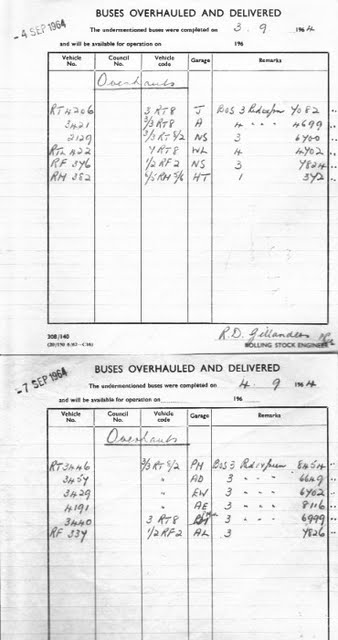 BUSES OVERHAULED AND DELIVERED
- 4 SEP 1964
The undermentioned buses were completed on 3. 9 1964
and will be available for operation on 196
Vehicle No. Council No. Vehicle code Garage Remarks
Overhauls
RT 4206 3 RT8 J BOS 3 7082 ..
3421 3/3 RT8 A 4 " " " 4699 ..
2129 3/3 RT 8/2 NS 3 6700 ..
RTL 422 7 RT8 WL 4 4702 ..
RF 376 1/2 RF2 NS 3 7824 ..
RM 382 HT 1 372 ..
R.D. Gillanders
308/140 ROLLING STOCK ENGINEER
BUSES OVERHAULED AND DELIVERED
- 7 SEP 1964
The undermentioned buses were completed on 4. 9 1964
and will be available for operation on 196
Vehicle No. Council No. Vehicle code Garage Remarks
Overhauls
RT 3446 3/3 RT 8/2 PH BOS 3 8454 ..
3457 " AD 3 " " " 6649 ..
3429 " EW 3 " " " 6702 ..
4191 " AE 3 " " " 8116 ..
3440 3 RT8 3 " " " 6999 ..
RF 334 1/2 RF2 AL 3 7826 ..